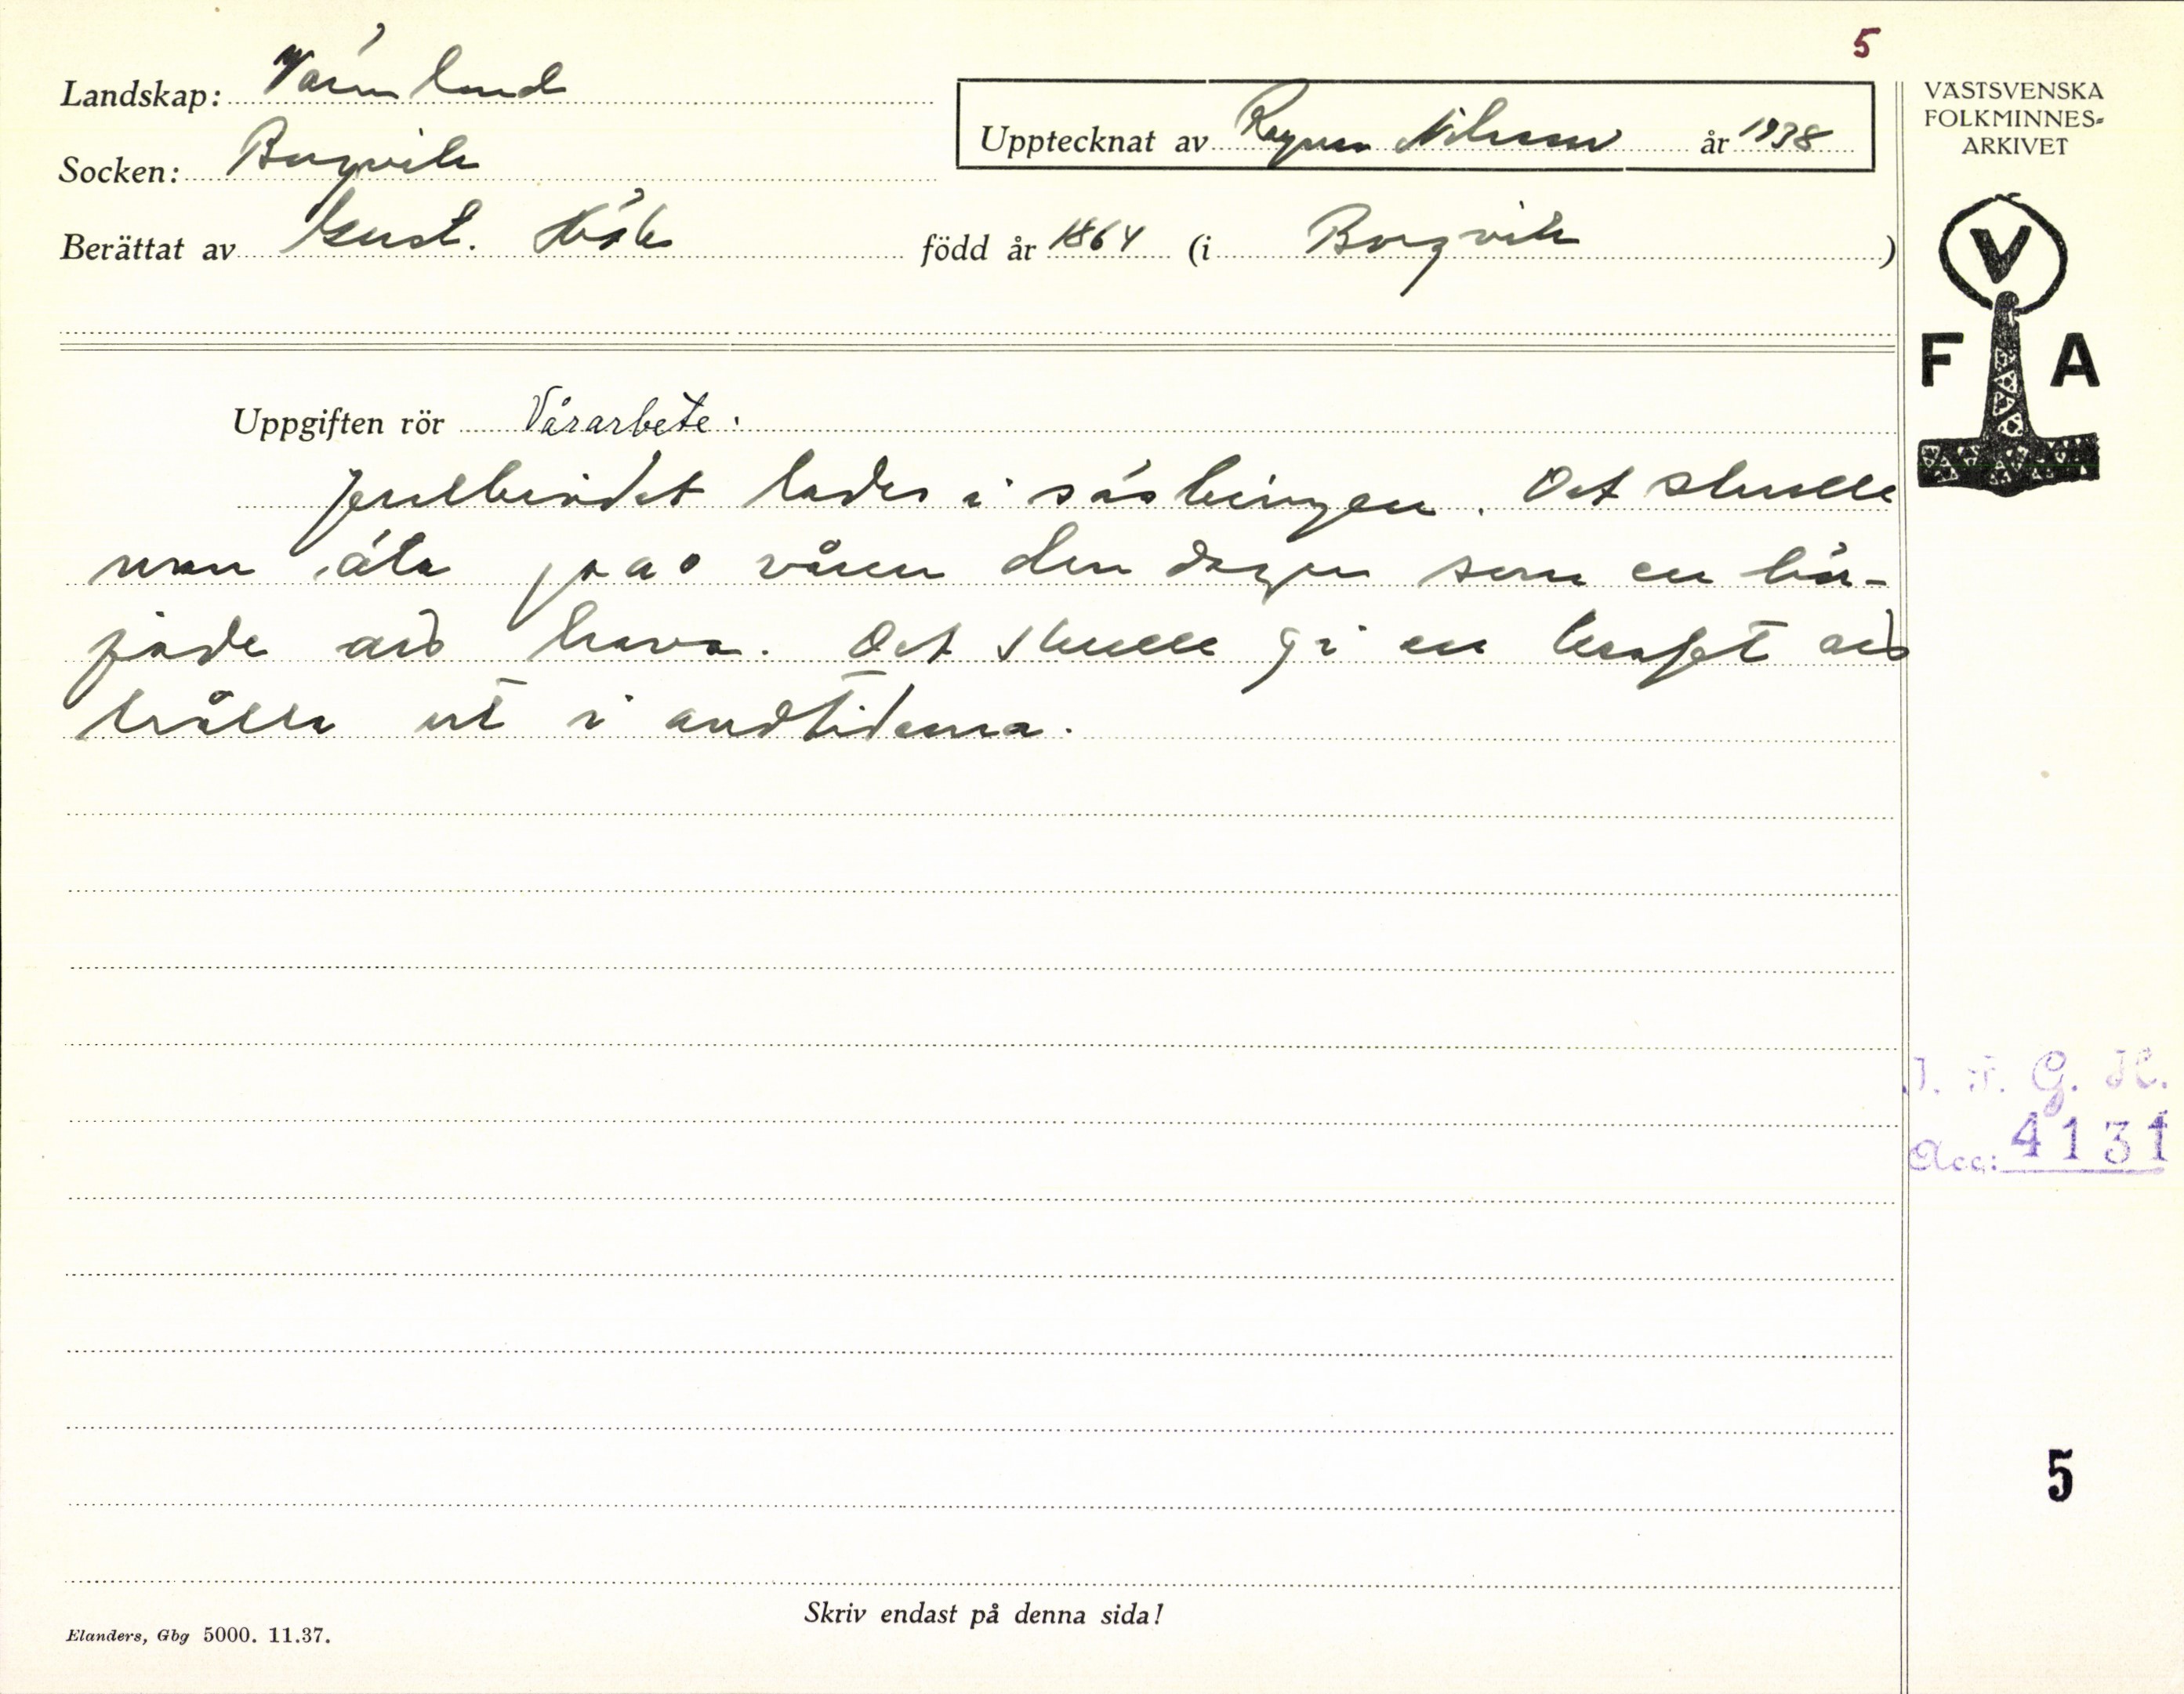 5
Landskap: Värmland
Upptecknat av Ragnar Nilsson år 1938
Socken: Borgvik
Berättat av Gust. Hök född år 1864 (i Borgvik)
VÄSTSVENSKA
FOLKMINNES-
ARKIVET
V
F A
Uppgiften rör Vårarbete.
Julbrödet lades i såabingen. Det skulle
man äta paa våren den dagen som en bör-
jade aas harva. Det skulle gi en kraft aas
hålla ut i andtiderna.
I. F. G. H.
Acc: 4131
5
Skriv endast på denna sida!
Elanders, Gbg 5000. 11.37.